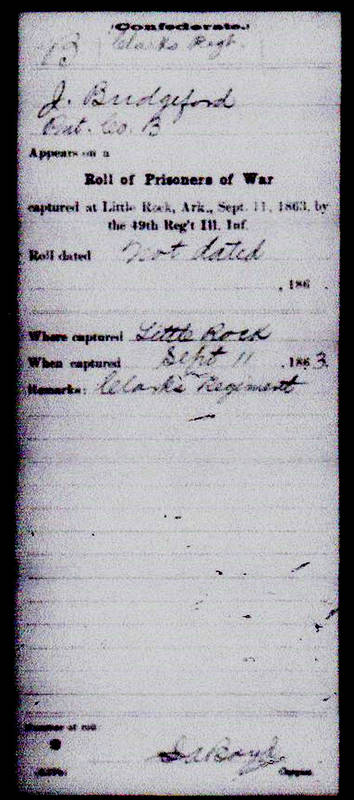 (Confederate.)
B Clarks Regt.
J. Bridgeford
Pvt. Co. B
Appears on a
Roll of Prisoners of War
captured at Little Rock, Ark., Sept. 11, 1863, by
the 49th Reg't Ill. Inf.
Roll dated Not dated
, 186 .
Where captured Little Rock
When captured Sept 11 , 1863.
Remarks: Clark's Regiment
Number of roll:
Copyist.